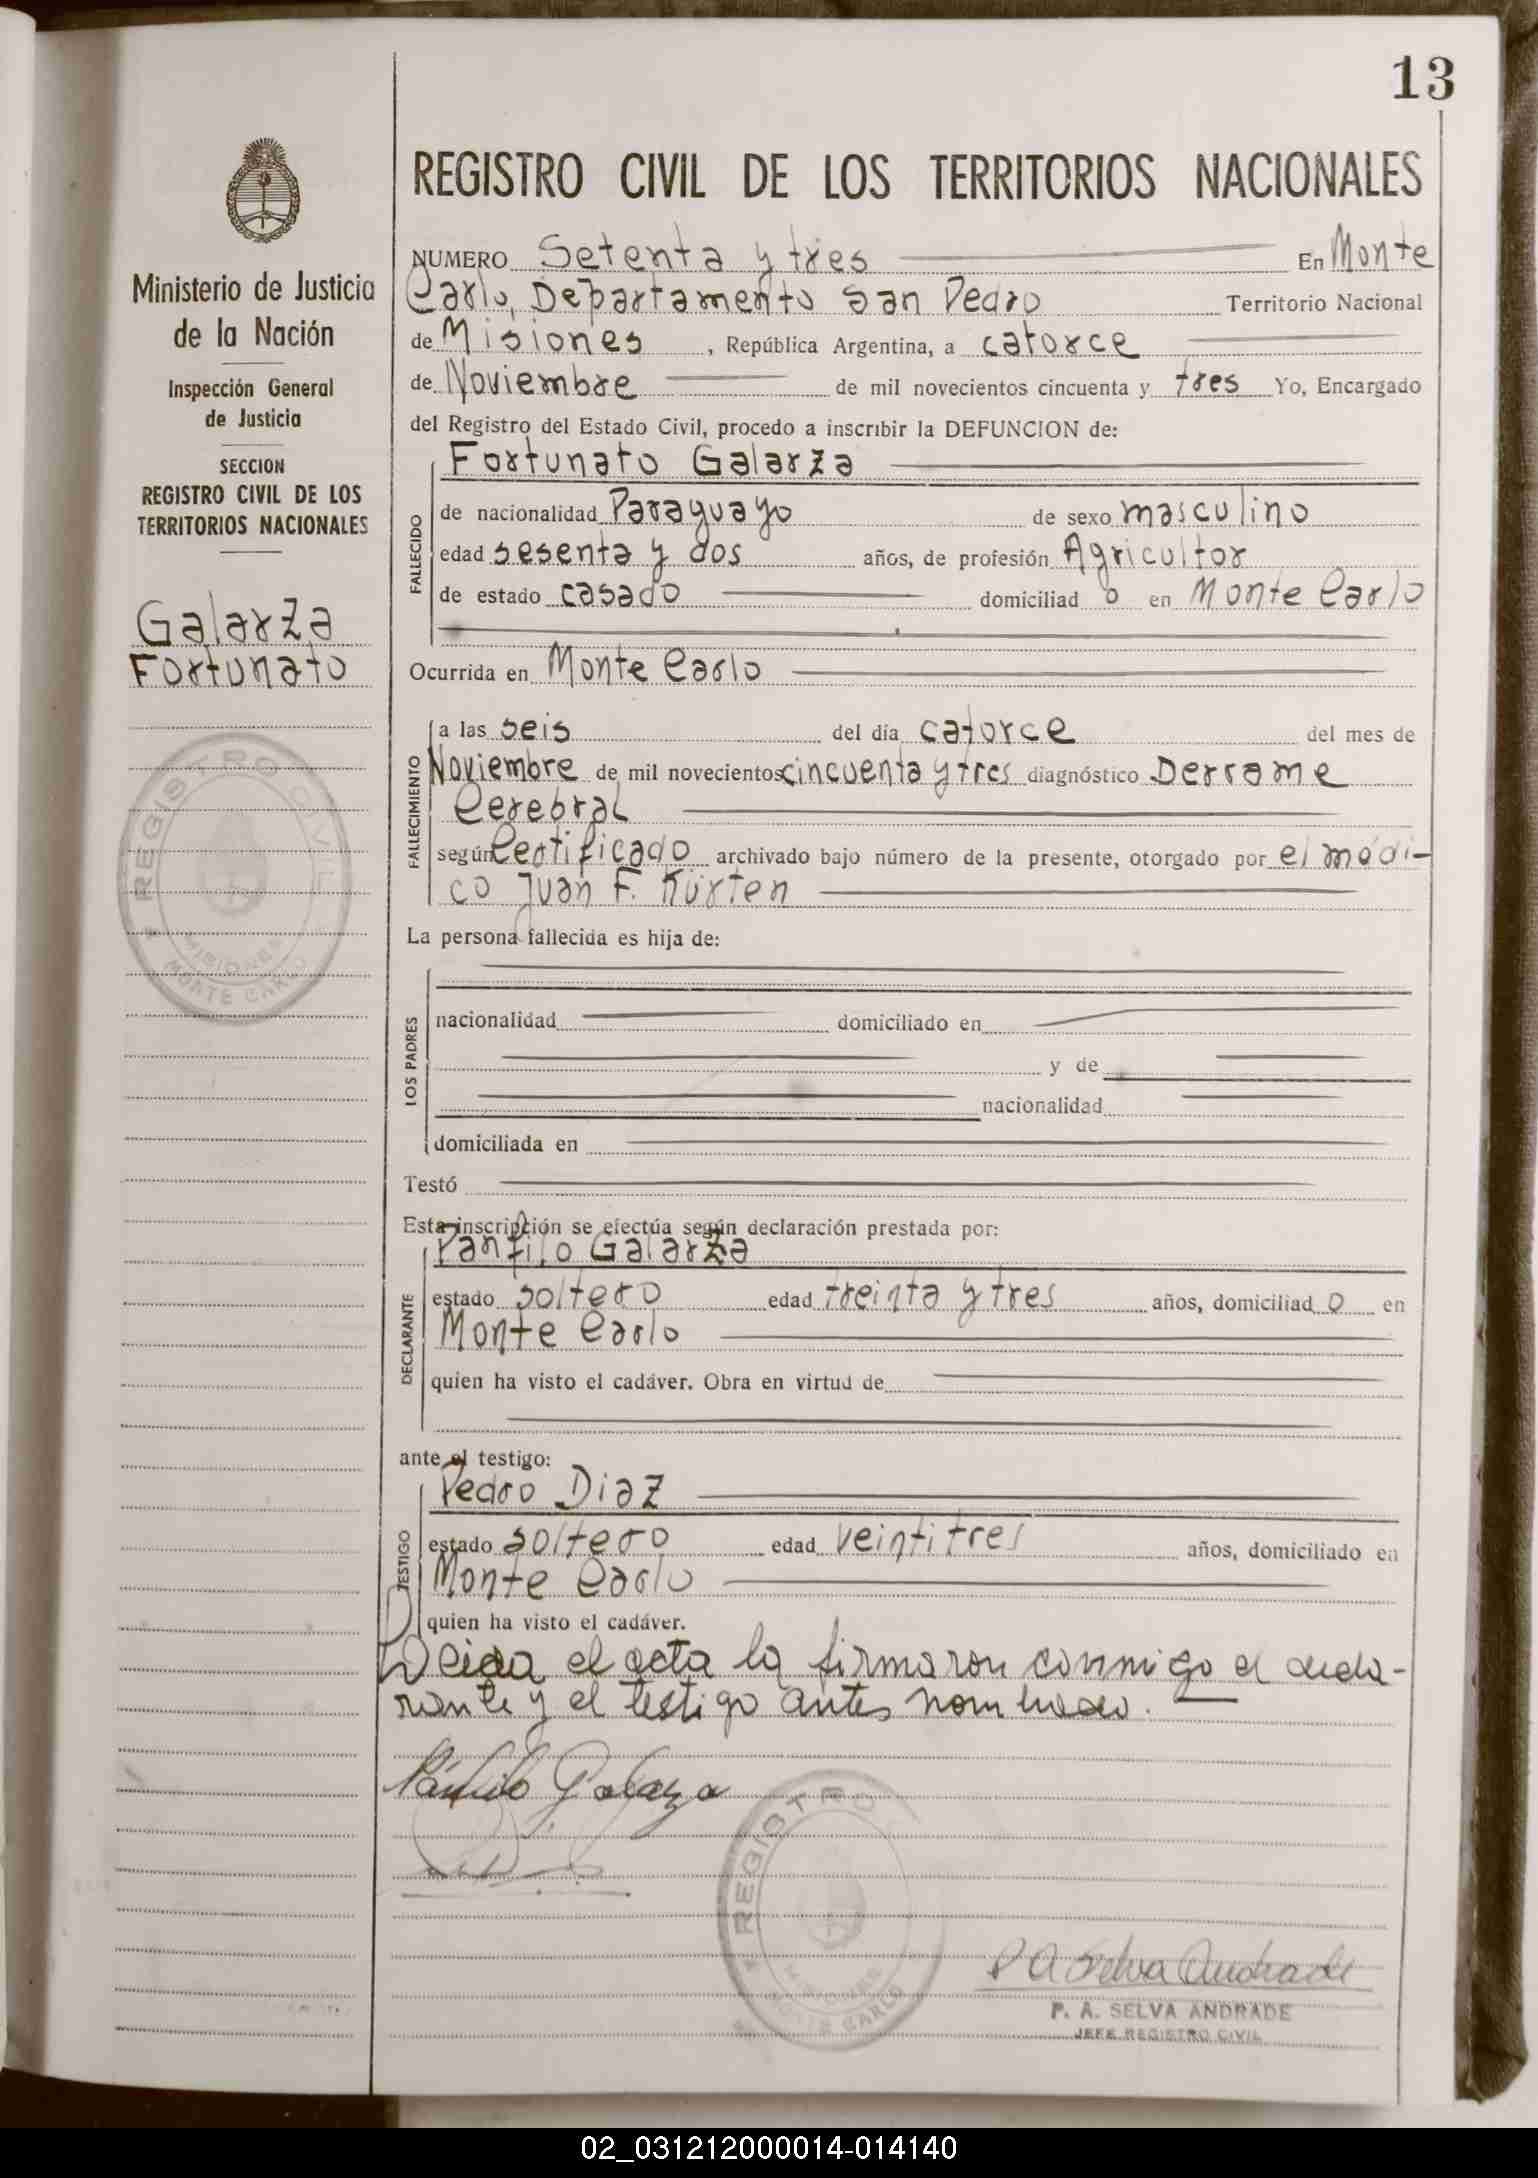 13
REGISTRO CIVIL DE LOS TERRITORIOS NACIONALES
Ministerio de Justicia
de la Nación
Inspección General
de Justicia
SECCION
REGISTRO CIVIL DE LOS
TERRITORIOS NACIONALES
Galarza
Fortunato
REGISTRO CIVIL
MISIONES
MONTE CARLO
NUMERO Setenta y tres En Monte
Carlo, Departamento San Pedro Territorio Nacional
de Misiones, República Argentina, a catorce
de Noviembre de mil novecientos cincuenta y tres Yo, Encargado
del Registro del Estado Civil, procedo a inscribir la DEFUNCION de:
FALLECIDO
Fortunato Galarza
de nacionalidad Paraguayo de sexo masculino
edad sesenta y dos años, de profesión Agricultor
de estado casado domiciliad o en Monte Carlo
Ocurrida en Monte Carlo
FALLECIMIENTO
a las seis del día catorce del mes de
Noviembre de mil novecientos cincuenta y tres diagnóstico Derrame
Cerebral
según Certificado archivado bajo número de la presente, otorgado por el médi-
co Juan F. Kürten
La persona fallecida es hija de:
LOS PADRES
nacionalidad domiciliado en
y de
nacionalidad
domiciliada en
Testó
Esta inscripción se efectúa según declaración prestada por:
DECLARANTE
Panfilo Galarza
estado soltero edad treinta y tres años, domiciliad o en
Monte Carlo
quien ha visto el cadáver. Obra en virtud de
ante el testigo:
TESTIGO
Pedro Diaz
estado soltero edad veintitres años, domiciliado en
Monte Carlo
quien ha visto el cadáver.
Leida el acta la firmaron conmigo el decla-
rante y el testigo antes nombrado.
Pánfilo Galarza
REGISTRO
MISIONES
MONTE CARLO
P A Selva Andrade
P. A. SELVA ANDRADE
JEFE REGISTRO CIVIL
02_031212000014-014140